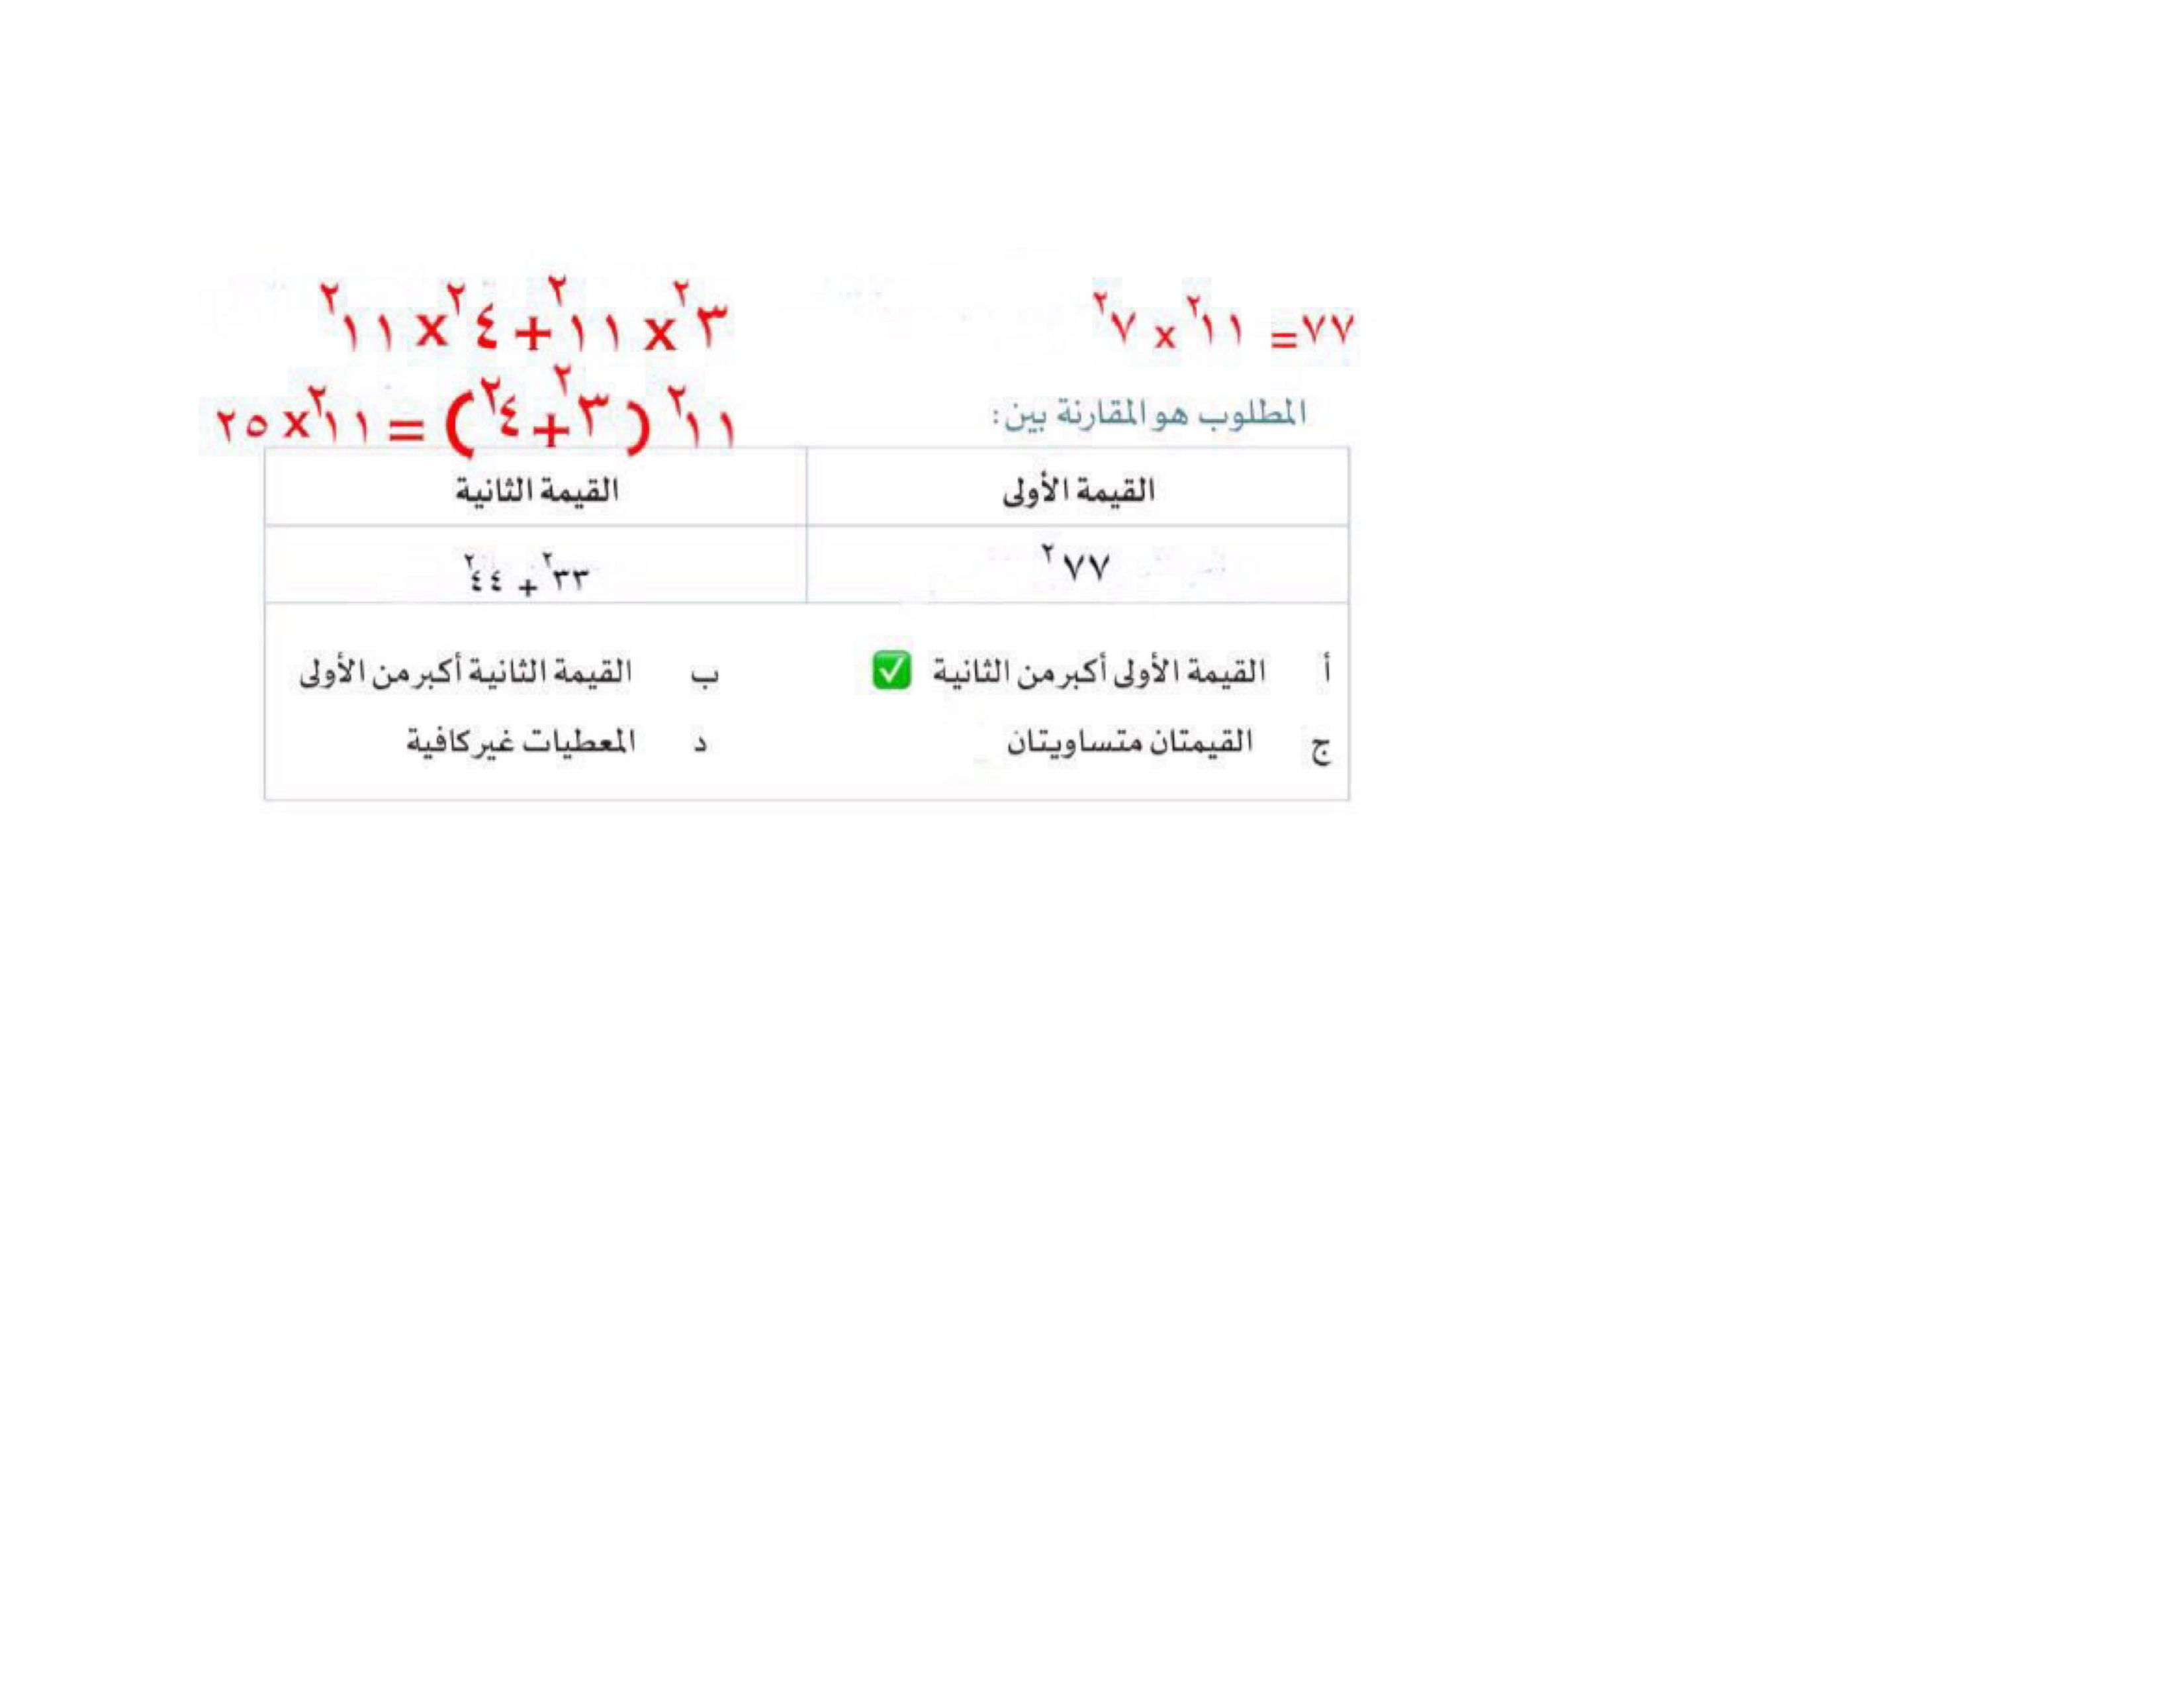 ٧٧= ١١² x ٧²
٣² x ١١² + ٤² x ١١²
١١² (٣² + ٤²) = ١١² x ٢٥
المطلوب هو المقارنة بين:
القيمة الأولى القيمة الثانية
٧٧² ٣٣² + ٤٤²
أ القيمة الأولى أكبر من الثانية ✅ ب القيمة الثانية أكبر من الأولى
ج القيمتان متساويتان د المعطيات غير كافية